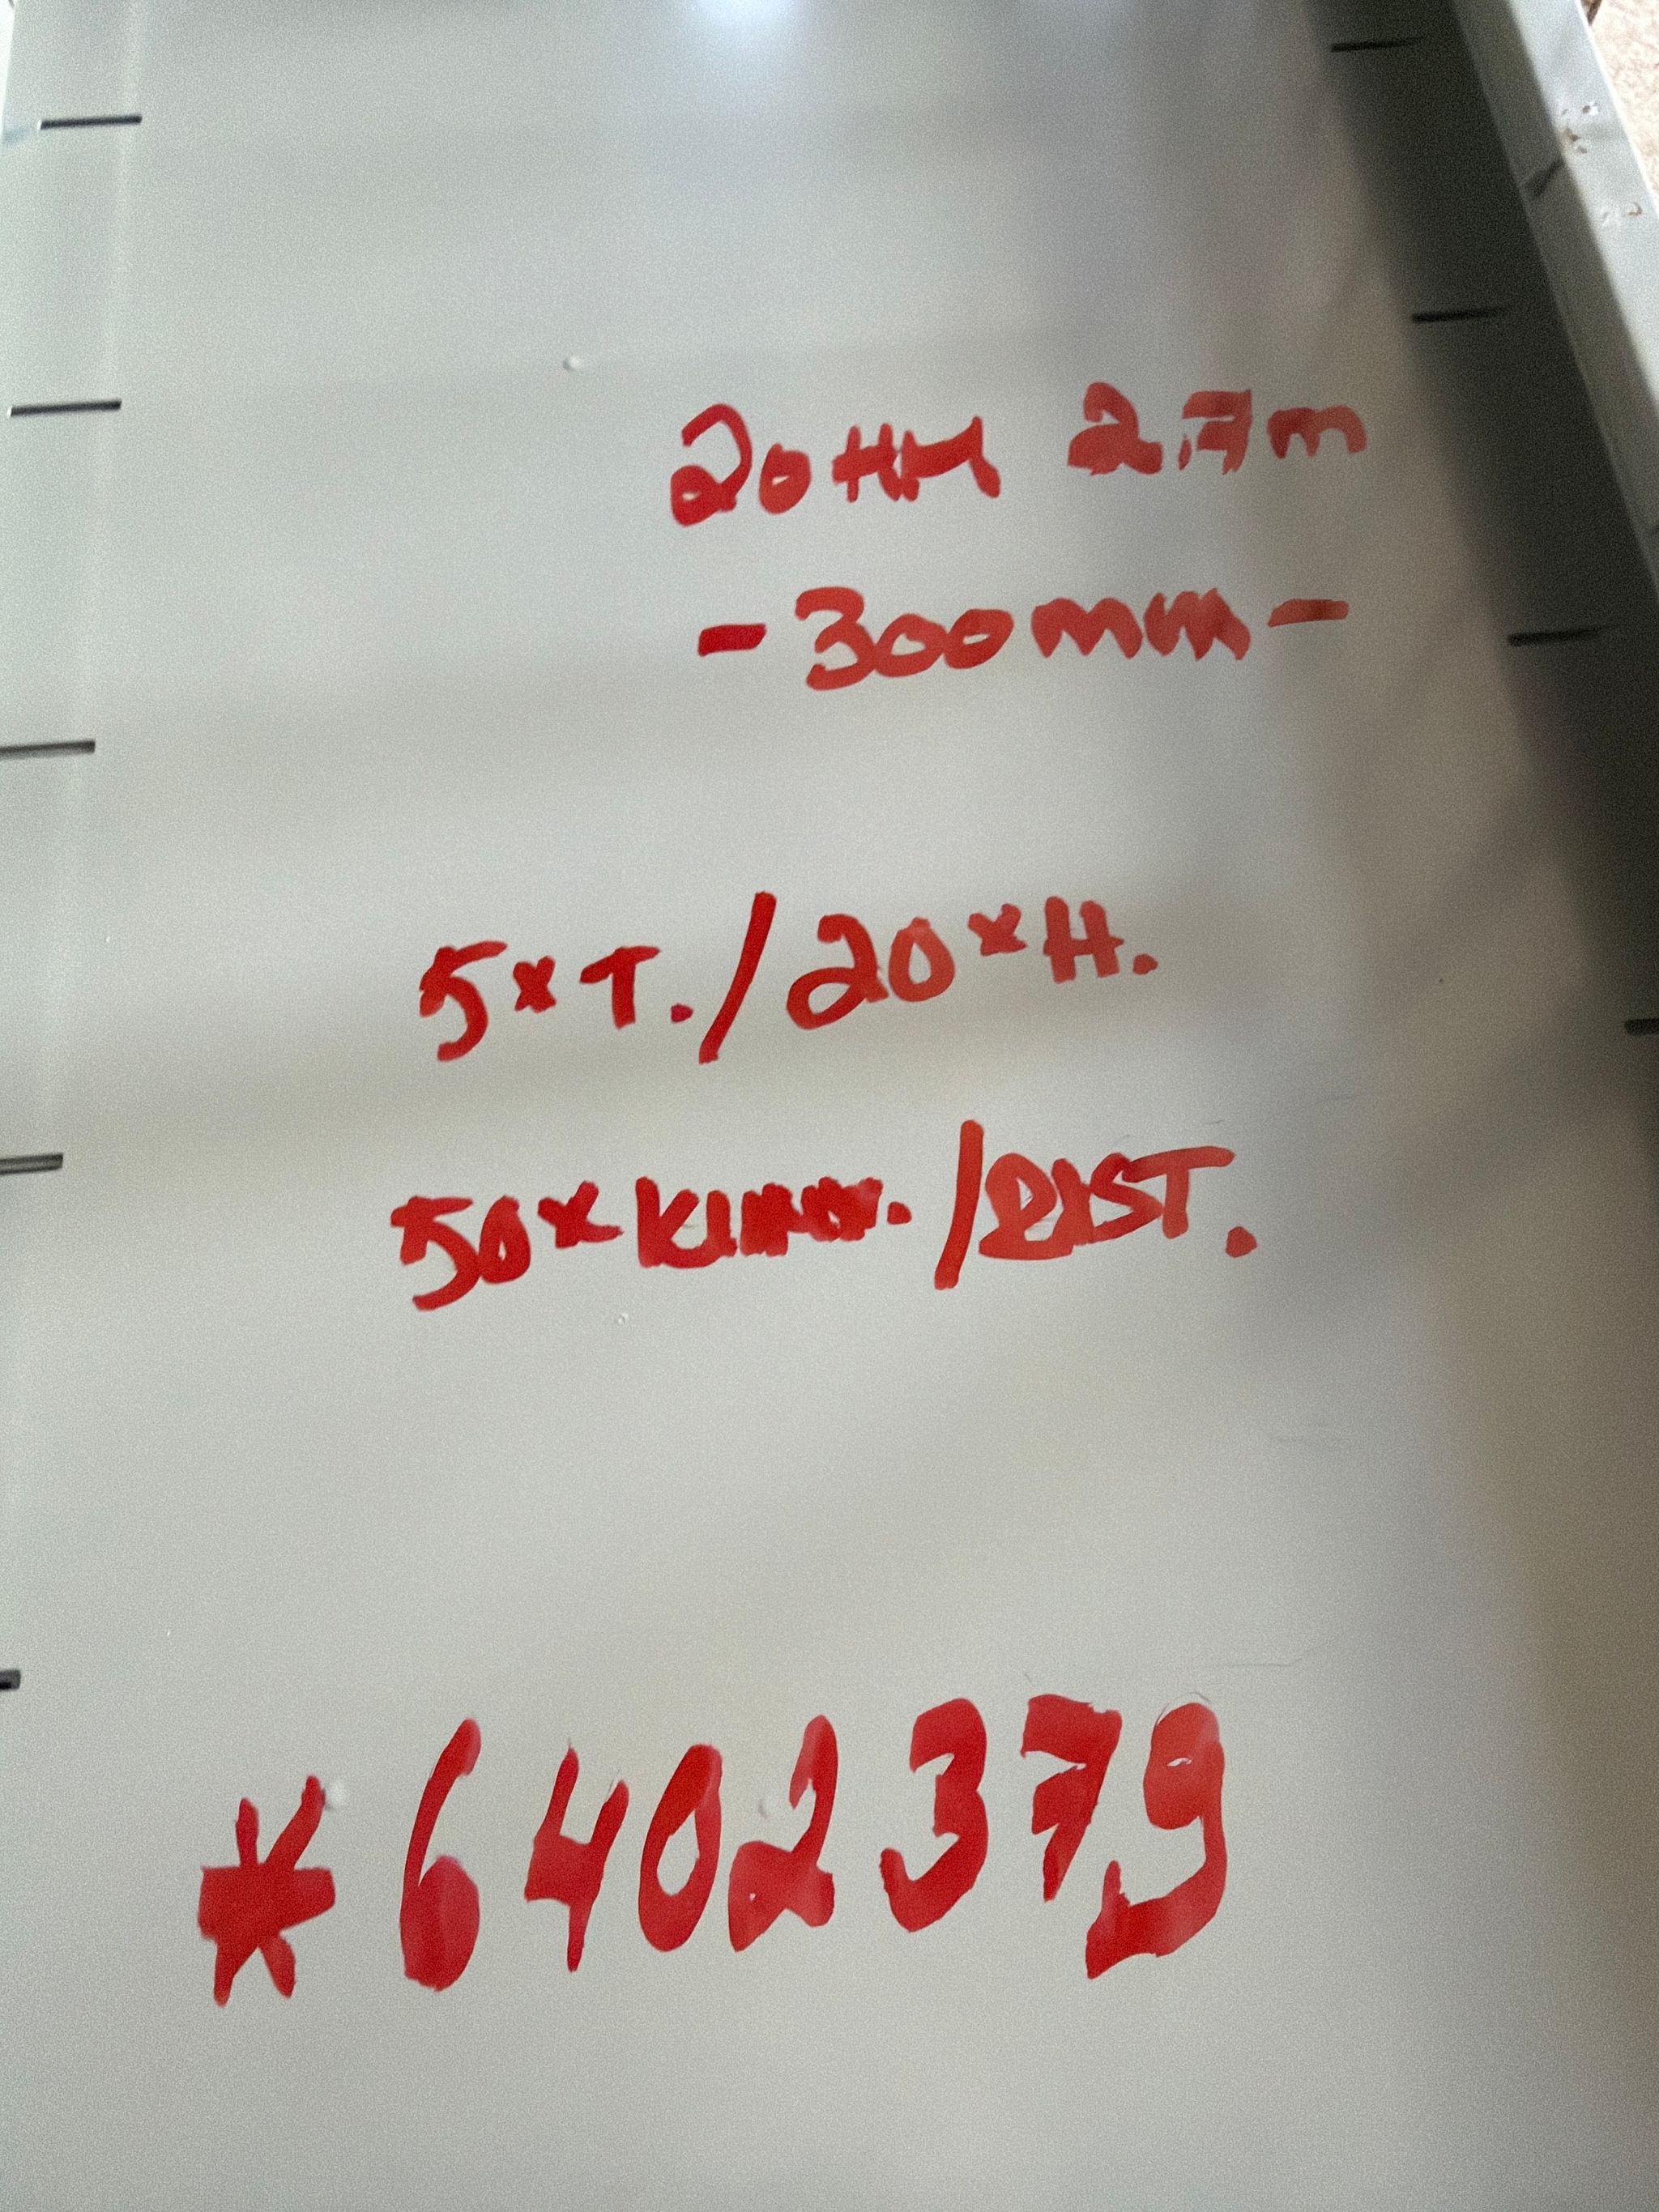 20 HM 2.7m
- 300mm -
5 x T. / 20 x H.
50 x / RIST.
* 6402379